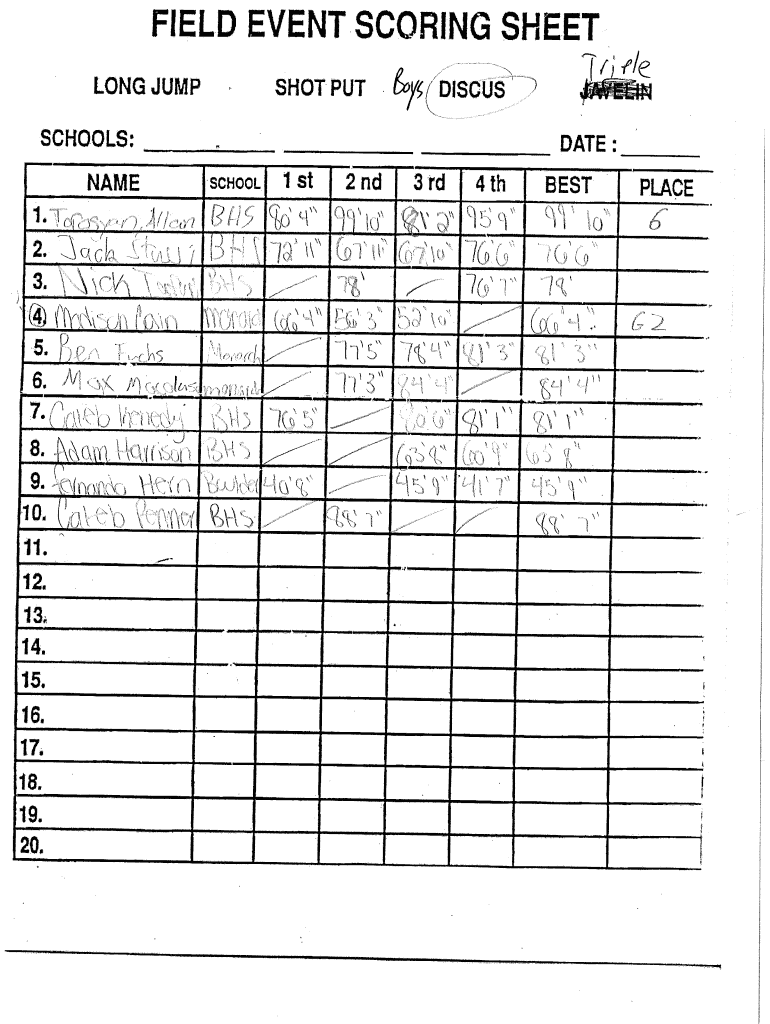 FIELD EVENT SCORING SHEET
Triple
LONG JUMP SHOT PUT Boys DISCUS JAVELIN
SCHOOLS: DATE :
NAME SCHOOL 1 st 2 nd 3 rd 4 th BEST PLACE
1. Allan BHS 80'4" 99'10" 81'2" 95'9" 99' 10" 6
2. Jack BHS 72'11" 67'11" 67'10" 76'6" 76'6"
3. Nick BHS / 78' / 76'7" 78'
4. Madison Cain monarch 66'4" 56'3" 52'10" / 66'4" G2
5. Ben Fuchs Monarch / 77'5" 78'4" 81'3" 81'3"
6. Max monarch / 77'3" 84'4" / 84'4"
7. Caleb Kenedy BHS 76'5" / 80'6" 81'1" 81'1"
8. Adam Harrison BHS / / 63'8" 60'9" 63'8"
9. Fernando Hern Boulder 40'8" / 45'9" 41'7" 45'9"
10. Caleb Penner BHS / 88'7" / / 88'7"
11.
12.
13.
14.
15.
16.
17.
18.
19.
20.